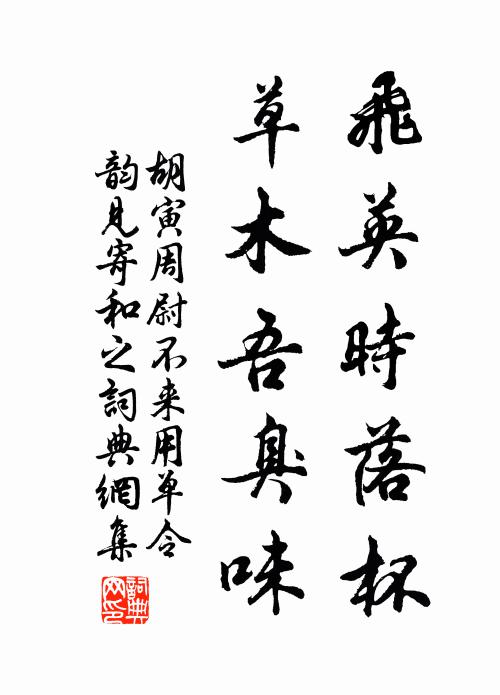 飛英時落杯
草木吾臭味
胡寅周尉不来用单令
韵見寄和之詞典網集
詞典網印